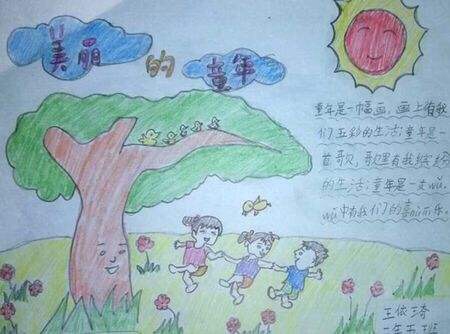 美丽的童年
童年是一幅画,画上有我
们五彩的生活;童年是一
首歌,歌里有我缤纷
的生活;童年是一支wǔ,
wǔ中有我们的喜和乐。
王依琦